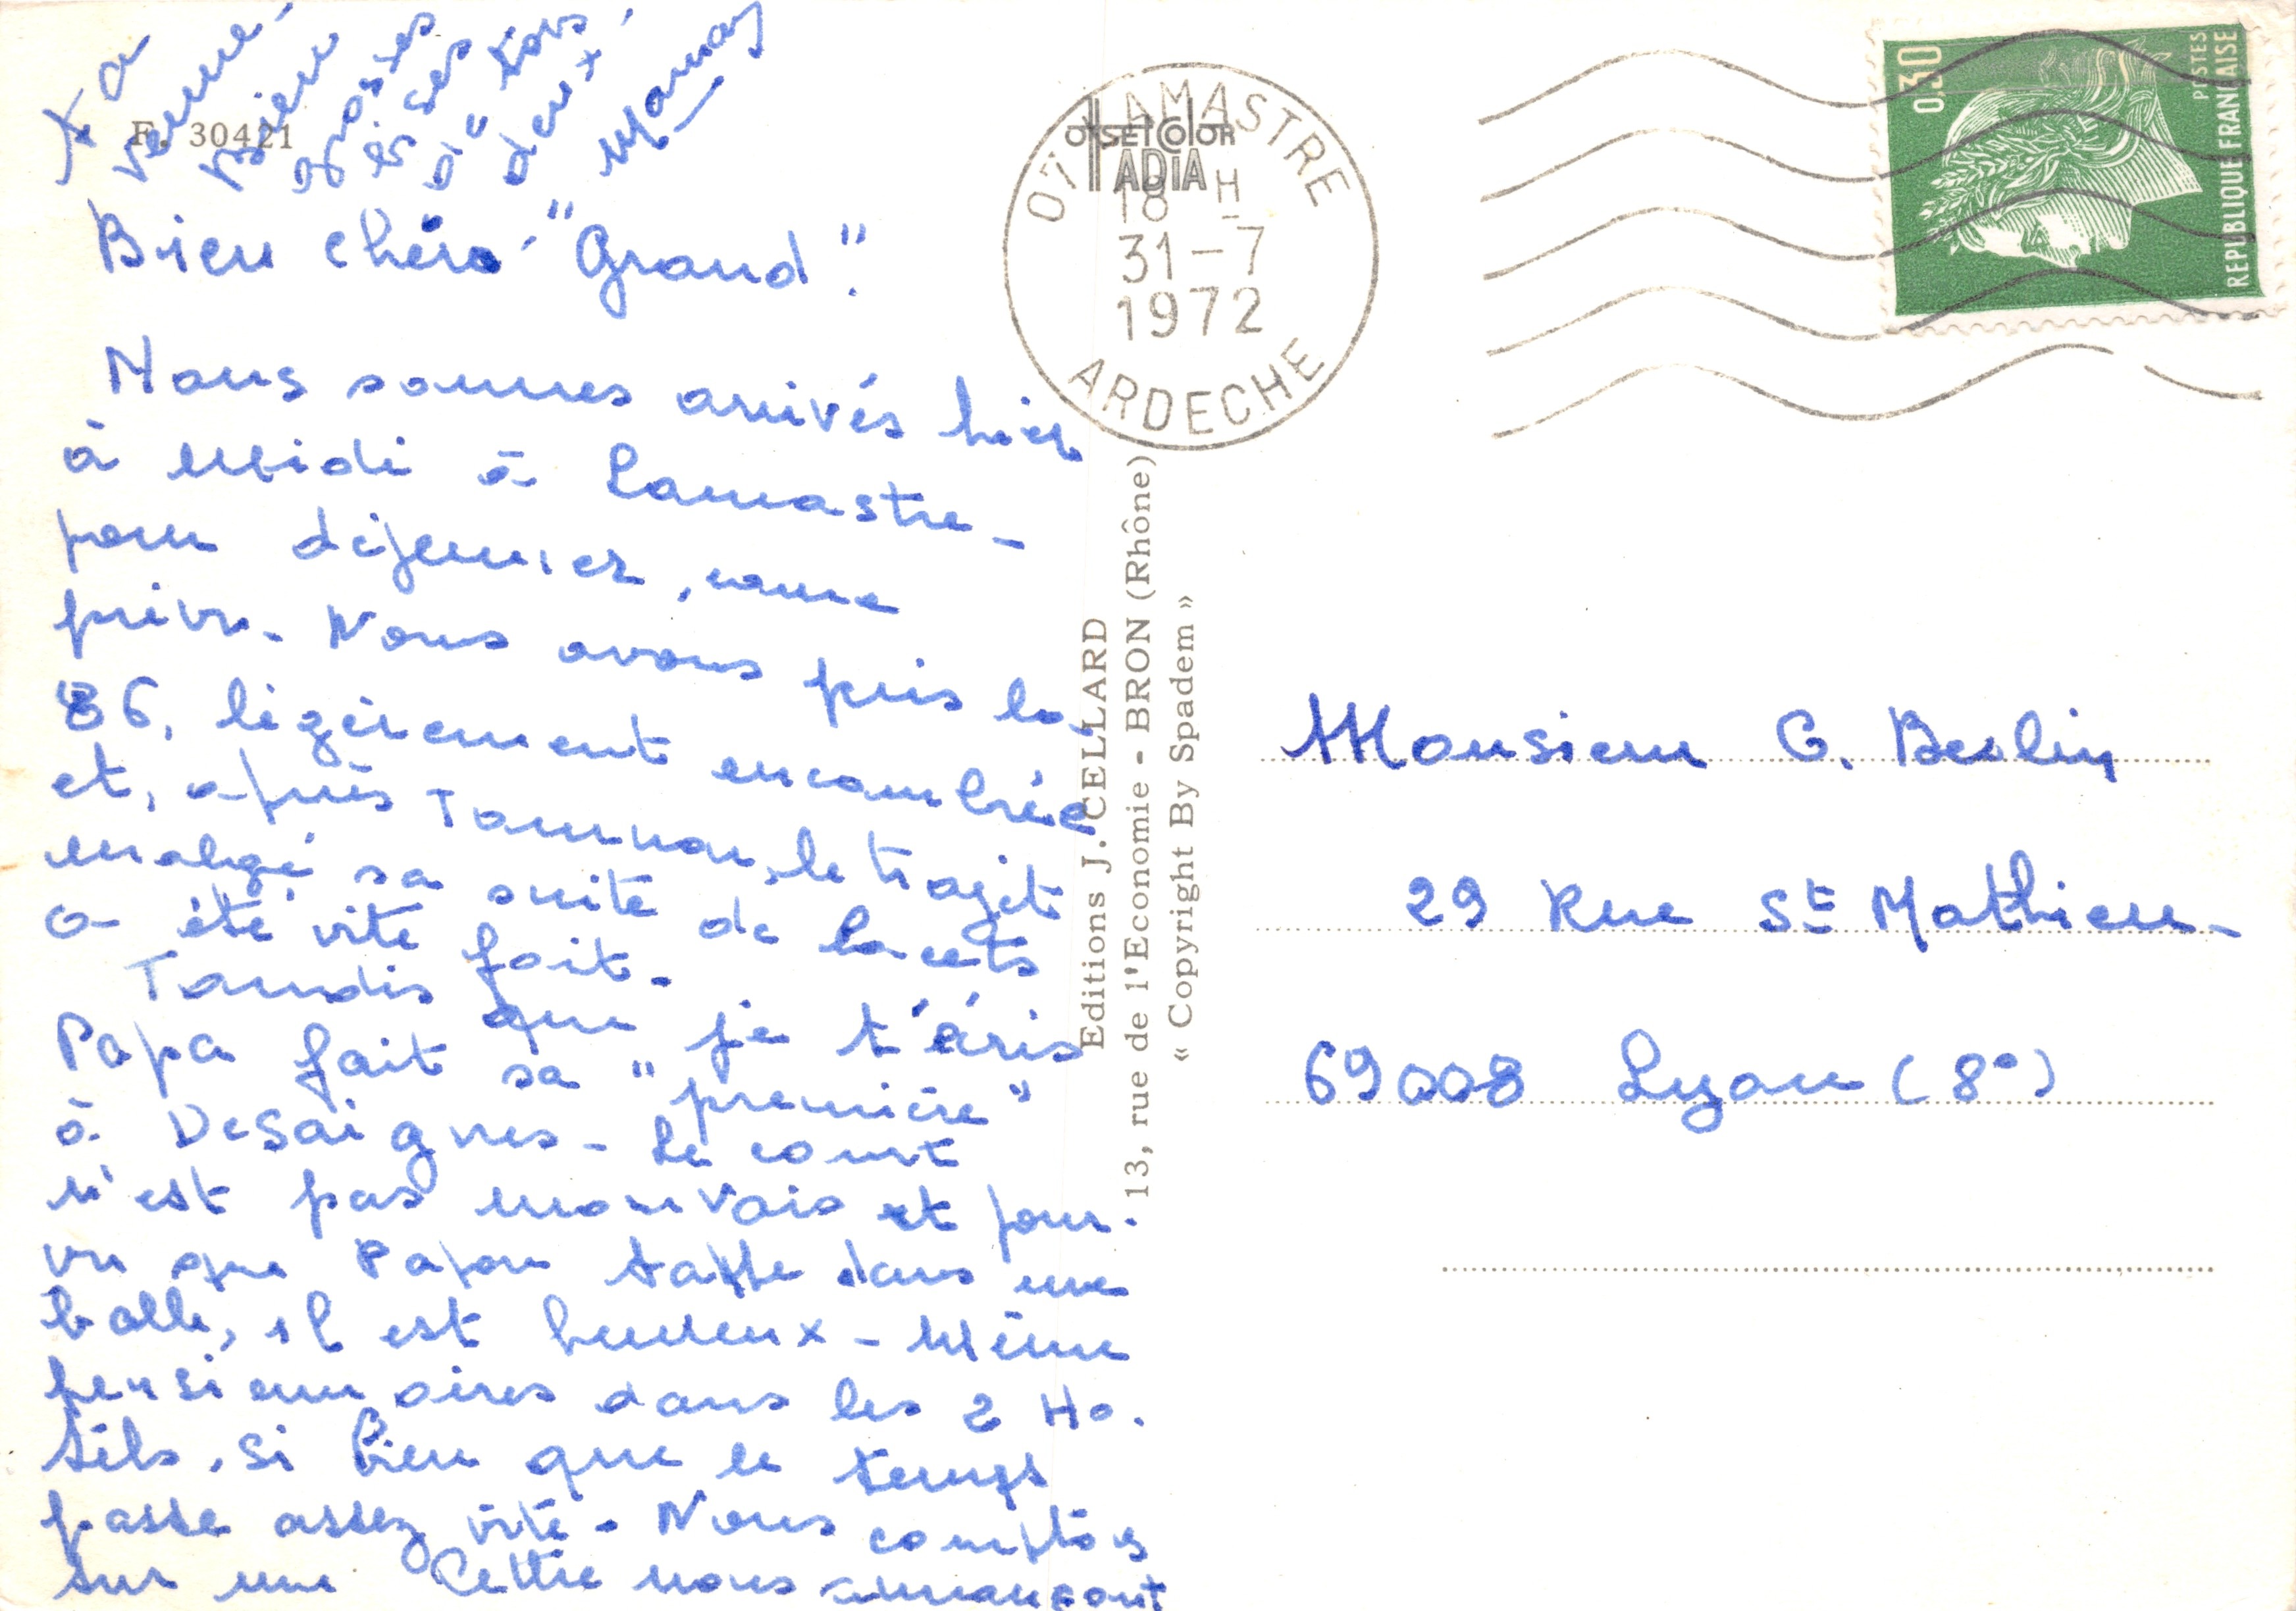 Bien chéro "Grand".
Nous sommes arrivés hier
à midi à Lamastre_
pour déjeuner, comme
prévu. Nous avons pris la
86, légèrement encombrée
et, après Tournon, le trajet
malgé sa suite de lacets
a été vite fait.
Tandis que je t'écris
Papa fait sa "première"
à Desaignes_ Le court
n'est pas mauvais et pour-
vu que Papou tappe dans une
balle, il est heureux_ Même
pensionnaires dans les 2 Ho-
tels, si bien que le temps
passe assez vite. Nous comptons
sur une lettre nous annonçant
ta
venue
F. 30421
07 LAMASTRE
OFFSETCOLOR
IADIA
18 H
31-7
1972
ARDECHE
0,30
POSTES
REPUBLIQUE FRANÇAISE
Editions J. CELLARD
13, rue de l'Economie - BRON (Rhône)
« Copyright By Spadem »
Monsieur G. Berlin
29 Rue St Mathieu_
69008 Lyon (8°)